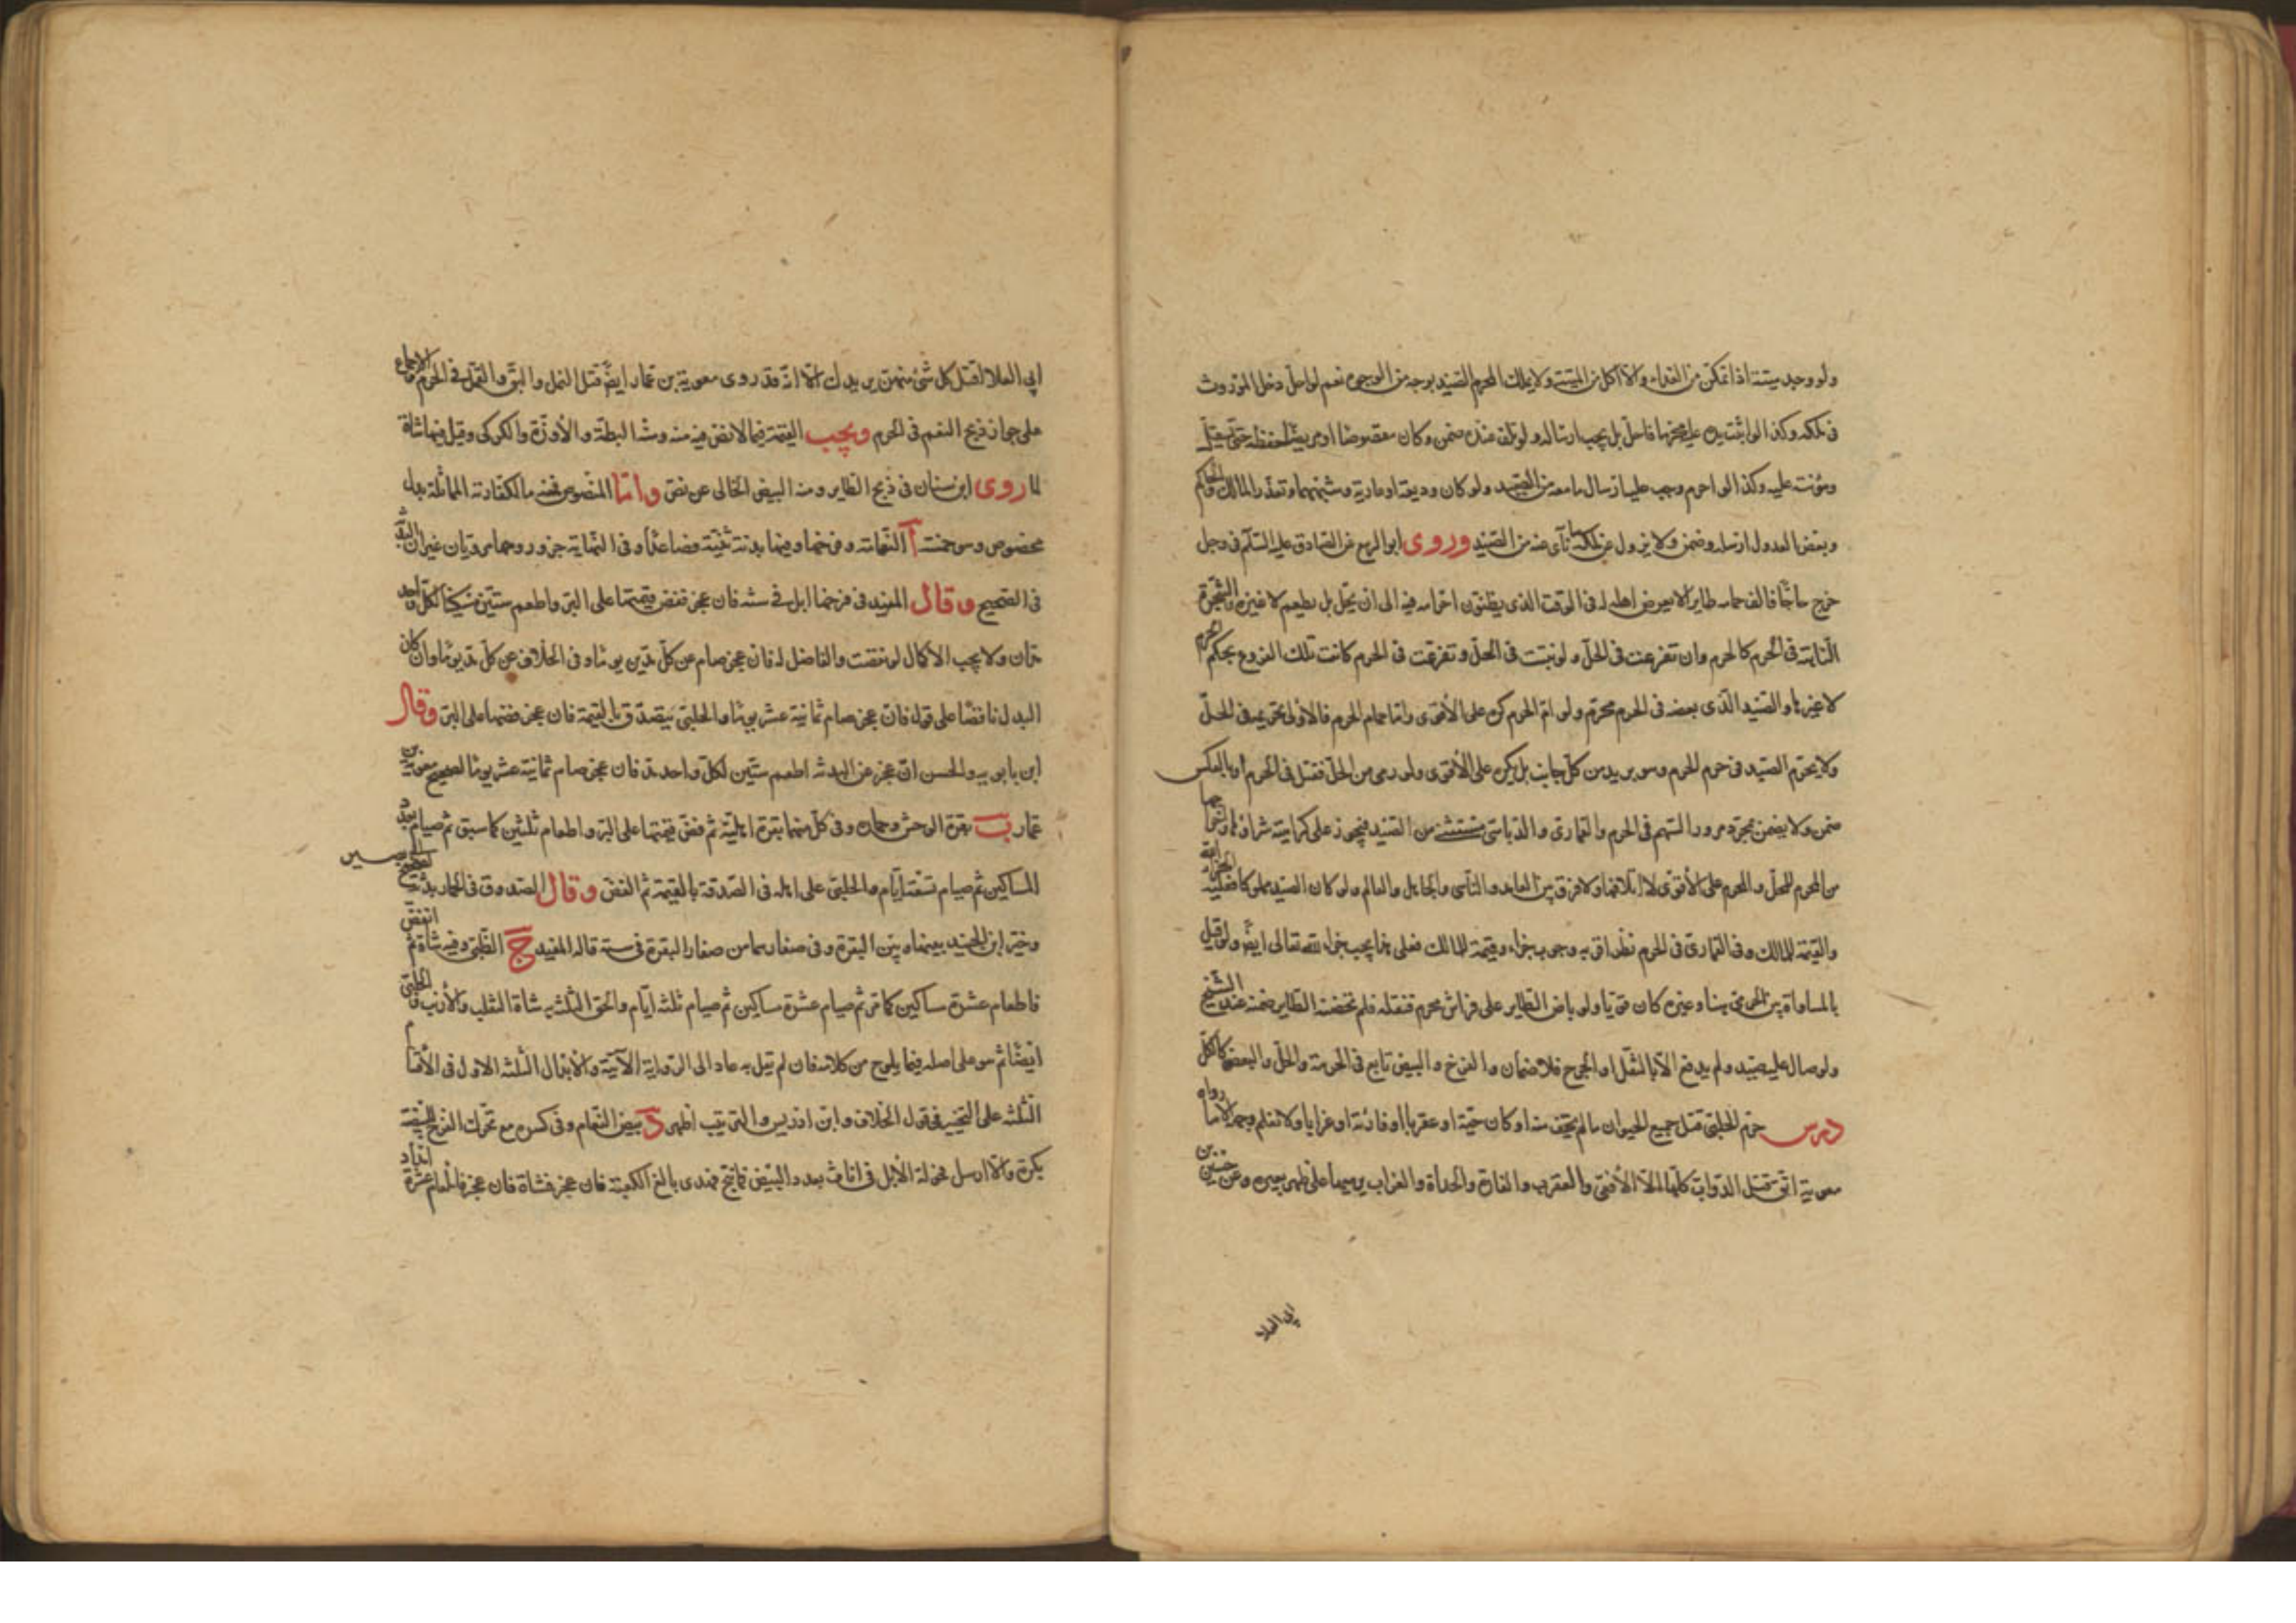 ولو وجد ميتة اذا تمكن من الفداء والا اكل من الميتة ولا يملك المحرم الصيد بوجه من الوجوه نعم لو احل دخل الموروث
فى ملكه وكذا لو اثبت يده عليه محرما فاحل بل يجب ارساله ولو تلف عنده ضمن وكان مقصوصا او مريضا حفظه حتى يستقل
ومؤنته عليه وكذا لو احرم وجب عليه ارسال ما معه من الصيد ولو كان وديعة او عارية وشبههما وتعذر المالك والحاكم
وبعض العدول ارسله وضمن ولا يزول عن ملكه ما نأى عنه من الصيد وروى ابو الربيع عن الصادق عليه السلام فى رجل
خرج حاجا فالف حمامه طايرا لا يعرض اهله له فى الوقت الذى يظنون احرامه فيه الى ان يحل بل يطعم لا غير والشجرة
النابتة فى الحرم كالحرم وان تفرعت فى الحل ولو نبتت فى الحل وتفرعت فى الحرم كانت تلك الفروع بحكم الحرم
لا غيرها والصيد الذى بعضه فى الحرم محرم ولو ام الحرم كره على الأقوى واما حمام الحرم فالاولى تحريمه فى الحل
ولا يحرم الصيد فى حرم الحرم وهو بريد من كل جانب بل يكره على الأقوى ولو رمى من الحل فقتل فى الحرم او بالعكس
ضمن ولا يضمن بمجرد مرور السهم فى الحرم والقمارى والدباسى مستثنى من الصيد فيجوز على كراهية شراؤها واخراجها
من الحرم للمحل والمحرم على الأقوى لا اتلافها ولا فرق بين العامد والناسى والجاهل والعالم ولو كان الصيد مملوكا فعليه الجزاء لله
والقيمة للمالك وفى القمارى فى الحرم نظر اقربه وجوب جزاء وقيمة للمالك فعلى هذا يجب جزاء لله تعالى ايضا ولو قيل
بالمساواة بين الحرمى هنا وغيره كان قويا ولو باض الطاير على فراش محرم فنقله فلم تحضنه الطاير ضمنه عند الشيخ
ولو صال عليه صيد ولم يدفع الا بالقتل او الجرح فلا ضمان والفرخ والبيض تابع فى الحرمة والحل والبعض كالكل
درس حرم الحلبى قتل جميع الحيوان ما لم يخف منه او كان حية او عقربا او فارة او غرابا ولا نعلم وجهه الا ما رواه
معوية اتق قتل الدواب كلها الا الأفعى والعقرب والفارة والحداة والغراب يرميهما على ظهر بعيره وعن حسين بن
ابى العلا
ابى العلا لقتل كل شئ منهن يريدك الا انه قد روى معوية بن عمار ايضا قتل النمل والبق والقمل فى الحرم والاجماع
على جواز ذبح النعم فى الحرم ويجب القيمة فيما لا نص فيه منه وشاة البطة والأوزة والكركى وقيل فيها شاة
لما روى ابن سنان فى ذبح الطاير ومنه البيض الخالى عن نص واما المنصوص فمنه ما لكفارته المماثلة بدل
مخصوص وهو خمسة آ النعامة وفرخها وفيها بدنة ثنية فصاعدا وفى النهاية جزور وهما مرويان غير ان البدنة
فى الصحيح وقال المفيد فى فرخها ابل فى سنه فان عجز فض قيمتها على البر واطعم ستين مسكينا لكل واحد
مدان ولا يجب الاكمال لو نقصت والفاضل له فان عجز صام عن كل مدين يوما وفى الخلاف عن كل مد يوما وان كان
البدل ناقصا على قول فان عجز صام ثمانية عشر يوما والحلبى يتصدق بالقيمة فان عجز فضها على البر وقال
ابن بابويه والحسن ان عجز عن البدنة اطعم ستين لكل واحد مد فان عجز صام ثمانية عشر يوما لصحيح معوية بن
عمار ب بقرة الوحش وحماره وفى كل منهما بقرة اهلية ثم فض قيمتها على البر واطعام ثلثين كما سبق ثم صيام بعدد
المساكين ثم صيام تسعة ايام والحلبى على اصله فى الصدقة بالقيمة ثم الفض وقال الصدوق فى الحمار بدنة لصحيح ابى بصير
وخير ابن الجنيد بينها وبين البقرة وفى صغارهما من صغار البقرة فى سنه قاله المفيد ج الظبى وفيه شاة ثم الفض
فاطعام عشرة مساكين كما مر ثم صيام عشرة مساكين ثم صيام ثلثة ايام والحق الثلثة به شاة الثعلب والأرنب والحلبى
ايضا ثم هو على اصله فيما يلوح من كلامه فان لم تقل به عاد الى الرواية الآتية والأبدال الثلثة الاول فى الأقسام
الثلثة على التخيير فى قول الخلاف وابن ادريس والترتيب اظهر د بيض النعام وفى كسره مع تحرك الفرخ للبيضة
بكرة والا ارسل فحولة الأبل فى اناث بعدد البيض فما نتج فهدى بالغ الكعبة فان عجز فشاة فان عجز فاطعام عشرة امداد